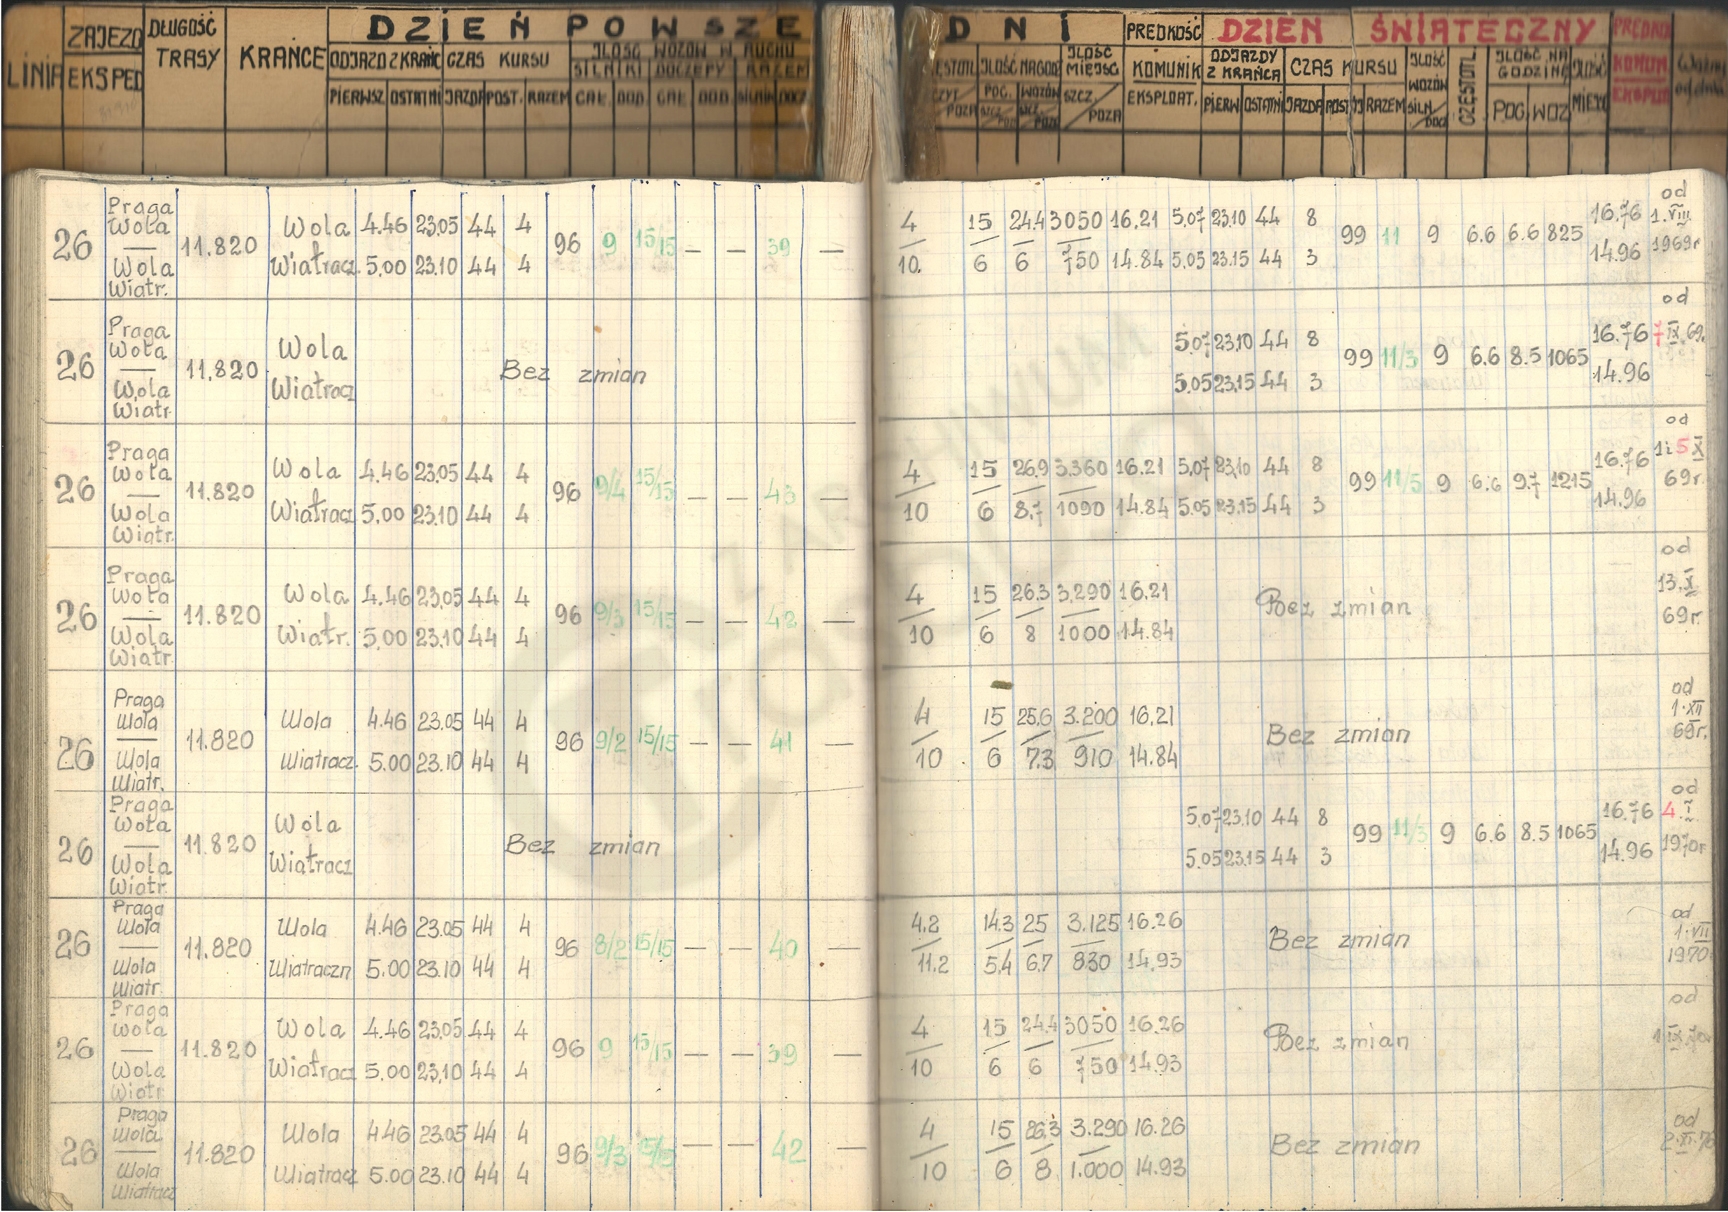 DZIEŃ POWSZE
DNI
DZIEŃ ŚWIĄTECZNY
LINIA
ZAJEZD
EKSPED
DŁUGOŚĆ
TRASY
KRAŃCE
ODJAZD Z KRAŃC
CZAS KURSU
ILOŚĆ WOZÓW W RUCHU
SILNIKI DOCZEPY RAZEM
PIERWSZ OSTATNI JAZDA POST. RAZEM CAŁ. DOD. CAŁ. DOD. DOCZ
ILOŚĆ NA GODZ
POC. WOZÓW
ILOŚĆ
MIEJSC
SZCZ.
POZA
PRĘDKOŚĆ
KOMUNIK
EKSPLOAT.
ODJAZDY
Z KRAŃCA
CZAS KURSU
PIERW OSTATNI JAZDA POST RAZEM
ILOŚĆ
WOZÓW
SILN.
DOCZ
CZĘSTOTL
ILOŚĆ NA
GODZINĘ
POC. WOZ
ILOŚĆ
MIEJSC
KOMUN.
EKSPLOA
26 Praga Wola — Wola Wiatr. 11.820
Wola 4.46 23.05 44 4
Wiatracz. 5.00 23.10 44 4
96 9 15/15 — — 39 —
4 15 24.4 3050 16.21 5.07 23.10 44 8
10. 6 6 750 14.84 5.05 23.15 44 3
99 11 9 6.6 6.6 825 16.76 14.96
od 1.VIII. 1969r
26 Praga Wola — Wola Wiatr. 11.820
Wola
Wiatracz
Bez zmian
5.07 23.10 44 8
5.05 23.15 44 3
99 11/3 9 6.6 8.5 1065 16.76 14.96
od 7 IX.69.
26 Praga Wola — Wola Wiatr. 11.820
Wola 4.46 23.05 44 4
Wiatracz 5.00 23.10 44 4
96 9/4 15/15 — — 43 —
4 15 26.9 3.360 16.21 5.07 23.10 44 8
10 6 8.7 1090 14.84 5.05 23.15 44 3
99 11/5 9 6.6 9.7 1215 16.76 14.96
od 1i5 X 69r.
26 Praga Wola — Wola Wiatr. 11.820
Wola 4.46 23.05 44 4
Wiatr. 5.00 23.10 44 4
96 9/3 15/15 — — 42 —
4 15 26.3 3.290 16.21
10 6 8 1000 14.84
Bez zmian
od 13.X 69r.
26 Praga Wola — Wola Wiatr. 11.820
Wola 4.46 23.05 44 4
Wiatracz. 5.00 23.10 44 4
96 9/2 15/15 — — 41 —
4 15 25.6 3.200 16.21
10 6 7.3 910 14.84
Bez zmian
od 1.XII 69r.
26 Praga Wola — Wola Wiatr. 11.820
Wola
Wiatracz
Bez zmian
5.07 23.10 44 8
5.05 23.15 44 3
99 11/3 9 6.6 8.5 1065 16.76 14.96
od 4.I 1970r
26 Praga Wola — Wola Wiatr. 11.820
Wola 4.46 23.05 44 4
Wiatraczn 5.00 23.10 44 4
96 8/2 15/15 — — 40 —
4.2 14.3 25 3.125 16.26
11.2 5.4 6.7 830 14.93
Bez zmian
od 1.VII 1970
26 Praga Wola — Wola Wiatr. 11.820
Wola 4.46 23.05 44 4
Wiatracz 5.00 23.10 44 4
96 9 15/15 — — 39 —
4 15 24.4 3050 16.26
10 6 6 750 14.93
Bez zmian
od 1 IX.70
26 Praga Wola — Wola Wiatracz 11.820
Wola 4.46 23.05 44 4
Wiatracz 5.00 23.10 44 4
96 9/3 15/15 — — 42 —
4 15 26.3 3.290 16.26
10 6 8 1.000 14.93
Bez zmian
od